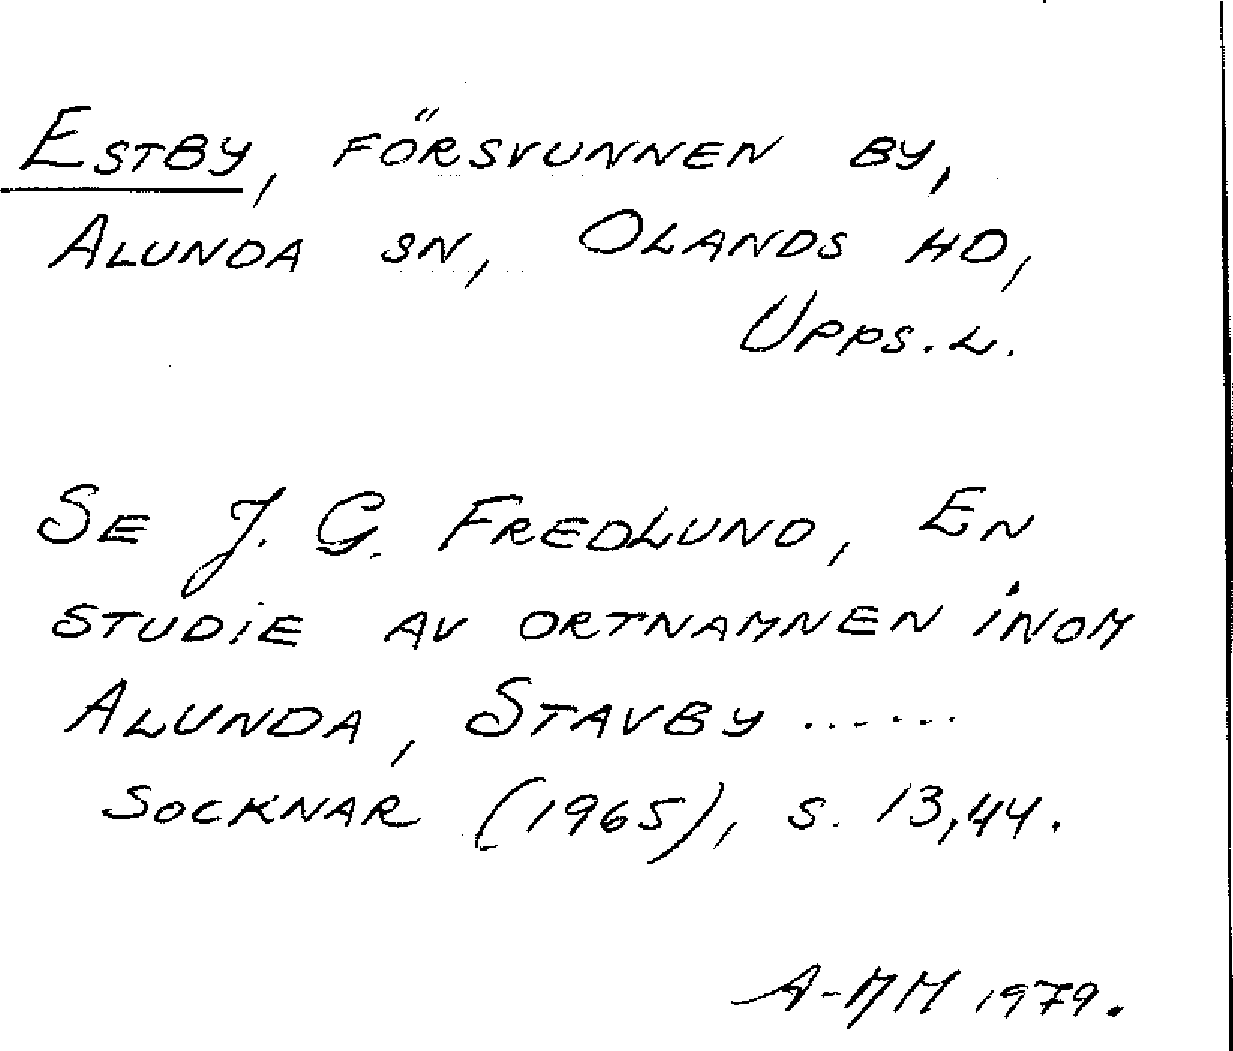 ESTBY, FÖRSVUNNEN BY,
ALUNDA SN, OLANDS HD,
UPPS. L.
SE J. G. FREDLUND, EN
STUDIE AV ORTNAMNEN INOM
ALUNDA, STAVBY ......
SOCKNAR (1965), S. 13,44.
A-MM 1979.